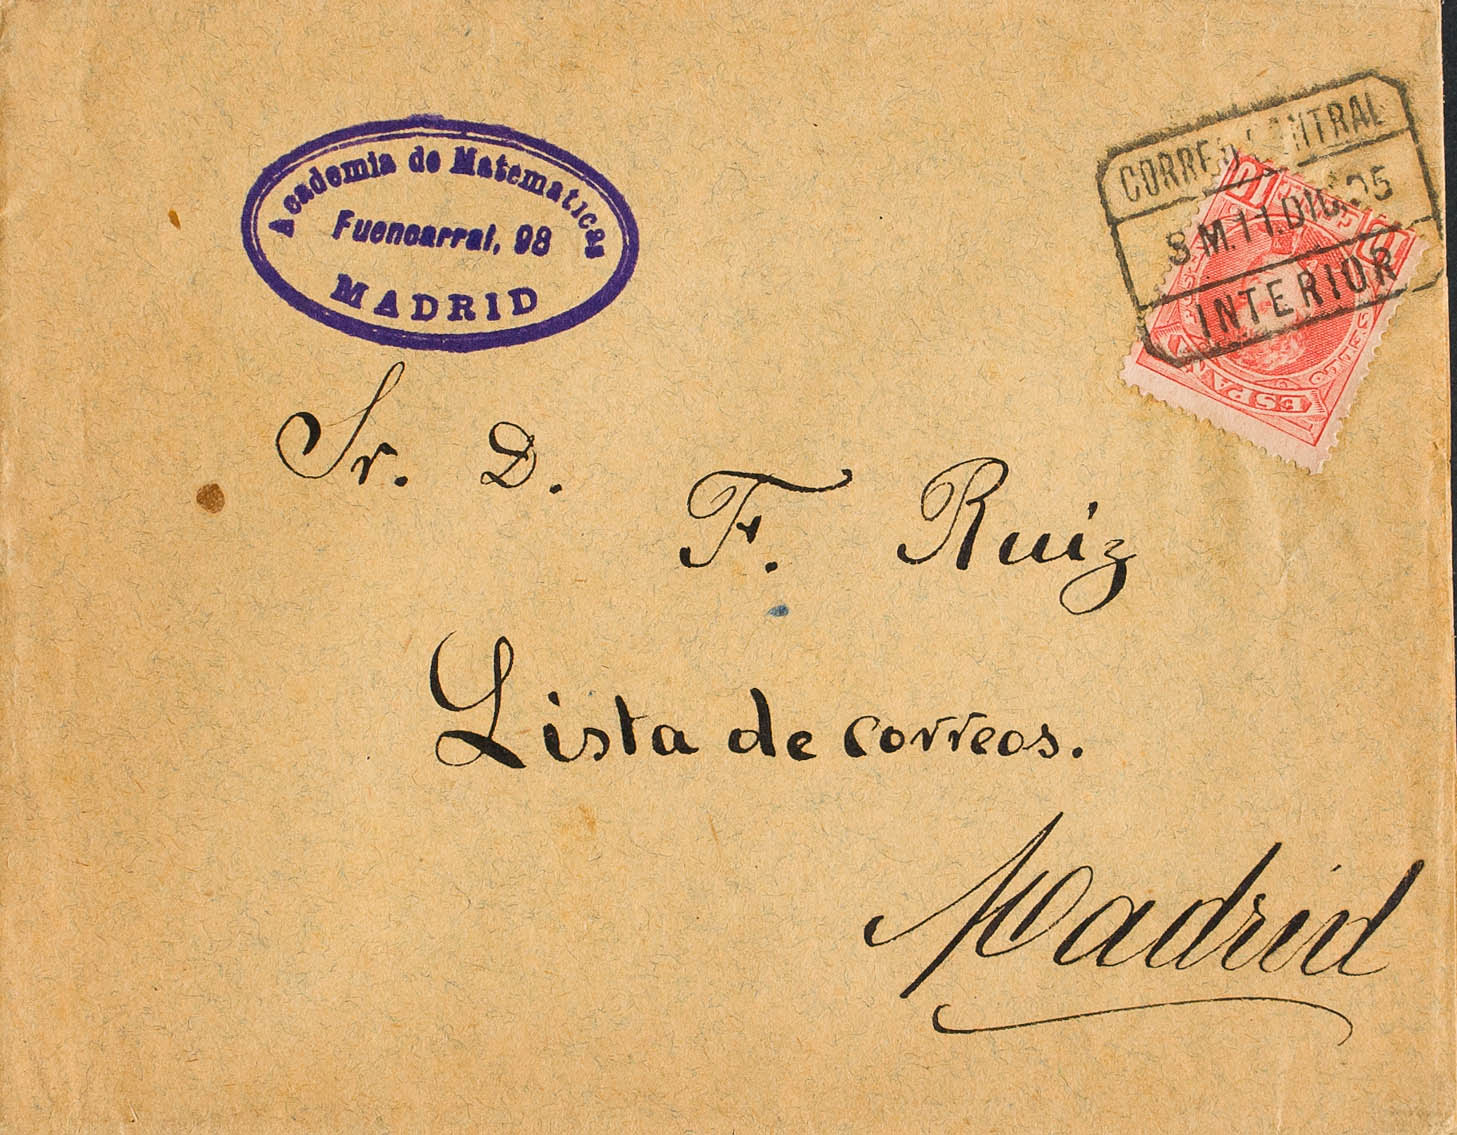 Academia de Matematicas
Fuencarral, 98
MADRID
CORREO CENTRAL
8 M. 11. DIC. 95
INTERIOR
10 10
ESPAÑA
Sr. D.
F. Ruiz
Lista de correos.
Madrid